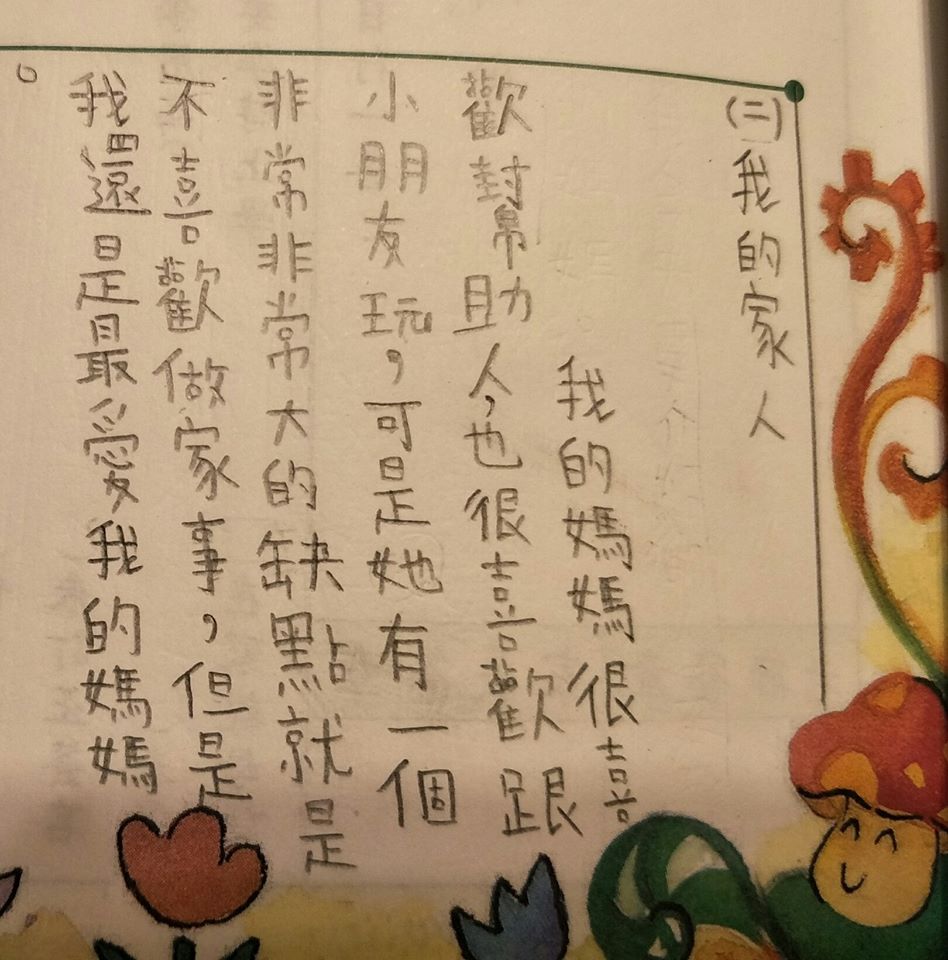 ㈡我的家人
我的媽媽很喜
歡幫助人,也很喜歡跟
小朋友玩,可是她有一個
非常非常大的缺點就是
不喜歡做家事,但是
我還是最愛我的媽媽
。